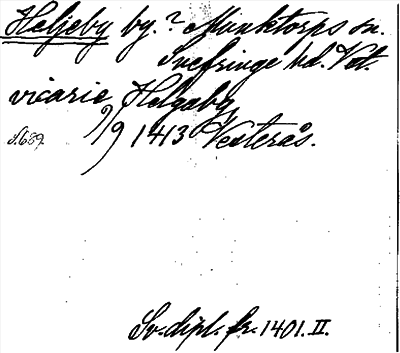 Heljeby by. ? Munktorps sn.
Snefringe hd. Vstl.
vicarie Helgaby
S. 689. 9/9 1413 Vesterås.
Sv. dipl. fr. 1401. II.